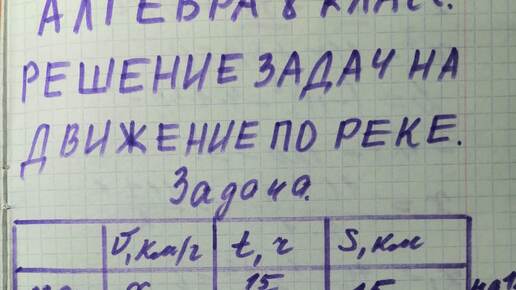 АЛГЕБРА 8 КЛАСС.
РЕШЕНИЕ ЗАДАЧ НА
ДВИЖЕНИЕ ПО РЕКЕ.
Задача.
V, км/г t, ч S, км
x 15 15